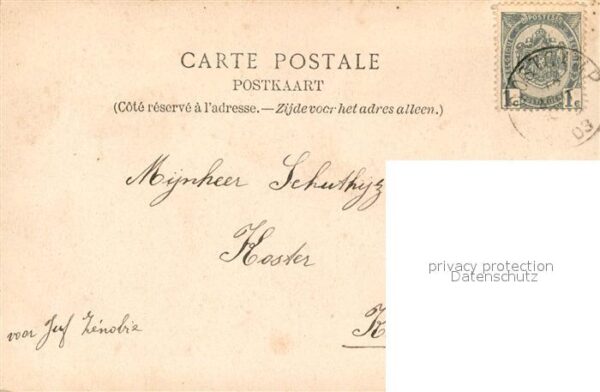 CARTE POSTALE
POSTKAART
(Côté réservé à l'adresse.—Zijde voor het adres alleen.)
1c 1c
03
Mijnheer
Koster
voor Juf Zénobie
K
privacy protection
Datenschutz